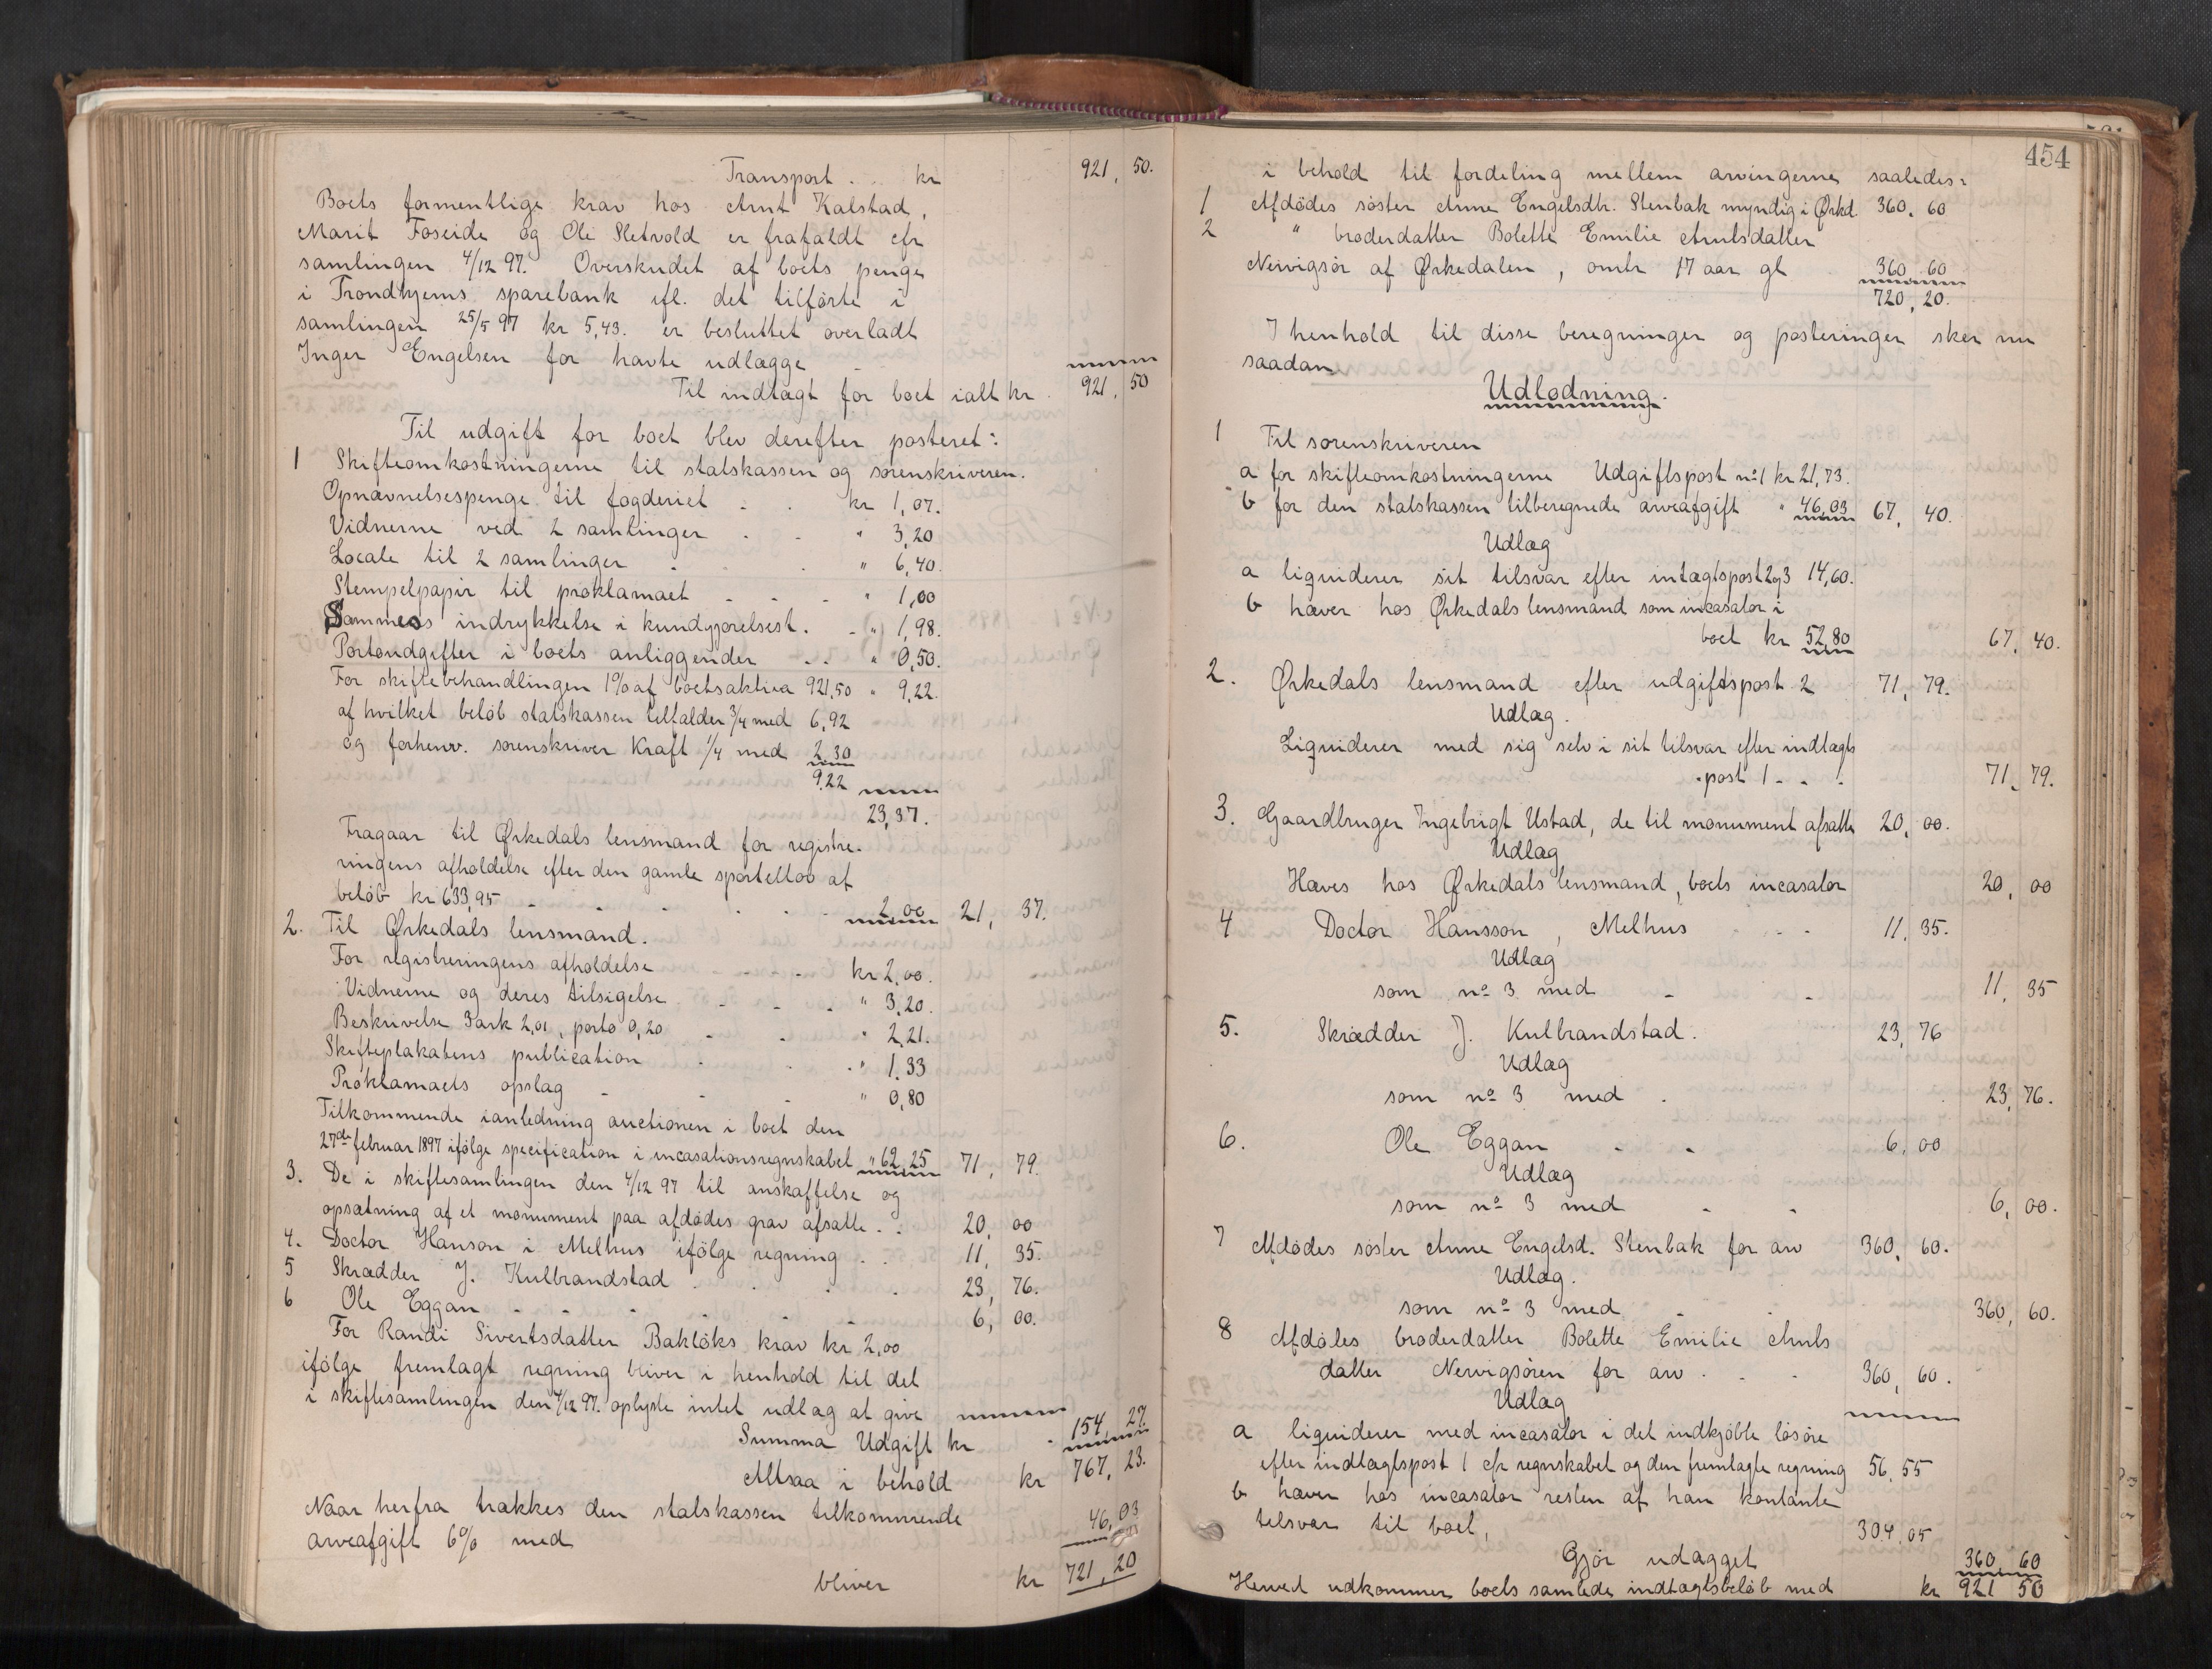 Transport . . kr 921, 50.
Boets formentlige krav hos Arnt Kalstad,
Marit Foseide og Ole Sletvold er frafaldt cfr
samlingen 4/12 97. Overskudet af boets penge
i Trondhjems sparebank ifl. det tilførte i
samlingen 25/5 97 kr 5,43. er besluttet overladt
Inger Engelsen for havte udlægge
Til indtægt for boet ialt kr. 921, 50
Til udgift for boet blev derefter posteret:
1 Skifteomkostningerne til statskassen og sorenskriveren.
Opnævnelsespenge til fogderiet . . kr 1,07.
Vidnerne ved 2 samlinger . - " 3,20
Locale til 2 samlinger . . " 6,40.
Stempelpapir til proklamaet - - - " 1,00
Sammes indrykkelse i kundgjørelsest. - " 1,98.
Portoudgifter i boets anliggender . . " 0,50.
For skiftebehandlingen 1% af boets aktiva 921,50 " 9,22.
af hvilket beløb statskassen tilfalder 3/4 med 6,92
og forhenv. sorenskriver Kraft 1/4 med 2,30
9,22
23,37.
Fragaar til Ørkedals lensmand for registre-
ringens afholdelse efter den gamle sportellov af
beløb kr 633,95 - - - - - 2,00 21, 37.
2. Til Ørkedals lensmand.
For registreringens afholdelse - - - kr 2,00.
Vidnerne og deres tilsigelse - - - " 3,20.
Beskrivelse 3 ark 2,01, porto 0,20 - - " 2,21.
Skifteplakatens publication - - - " 1,33
Proklamaets opslag - - - " 0,80
Tilkommende ianledning auctionen i boet den
27de februar 1897 ifølge specification i incasationsregnskabet " 62,25 71, 79.
3. De i skiftesamlingen den 4/12 97 til anskaffelse og
opsætning af et monument paa afdødes grav afsatte . . 20, 00
4. Doctor Hanson i Melhus ifølge regning . . 11, 35.
5 Skrædder J. Kulbrandstad . . . . 23, 76.
6 Ole Eggan - - - - - - 6, 00.
For Randi Sivertsdatter Bakløks krav kr 2,00
ifølge fremlagt regning bliver i henhold til det
i skiftesamlingen den 4/12 97. oplyste intet udlæg at give
Summa Udgift kr . 154, 27.
Altsaa i behold kr 767, 23.
Naar herfra trækkes den statskassen tilkommende
arveafgift 6% med 46, 03
bliver kr 721, 20
454
i behold til fordeling mellem arvingerne saaledes:
1 Afdødes søster Anne Engelsdtr. Stenbak myndig i Ørkd. 360, 60
2 " broderdatter Bolette Emilie Arntsdatter
Nervigsør af Ørkedalen, omtr 17 aar gl 360, 60
720, 20.
I henhold til disse beregninger og posteringer sker nu
saadan
Udlodning.
1 Til sorenskriveren
a for skifteomkostningerne Udgiftspost no 1 kr 21,73.
b for den statskassen tilberegnede arveafgift " 46,03 67, 40.
Udlæg
a liquiderer sit tilsvar efter intægtspost 2 og 3 14,60.
b hæver hos Ørkedals lensmand som incasator i
boet kr 52,80 67, 40.
2. Ørkedals lensmand efter udgiftspost 2 71, 79.
Udlæg.
Liquiderer med sig selv i sit tilsvar efter indtægts
-post 1 - - . 71, 79.
3. Gaardbruger Ingebrigt Ustad, de til monument afsatte 20, 00.
Udlæg
Hæves hos Ørkedals lensmand, boets incasator 20, 00
4 Doctor Hansson, Melhus - - - 11, 35.
Udlæg
som no 3 med - - 11, 35
5. Skrædder J. Kulbrandstad. 23, 76
Udlæg
som no 3 med . . 23, 76.
6. Ole Eggan - - 6, 00
Udlæg
som no 3 med - - 6, 00.
7 Afdødes søster Anne Engelsd. Stenbak for arv 360, 60.
Udlæg.
som no 3 med - - 360, 60.
8 Afdødes broderdatter Bolette Emilie Arnts
datter Nervigsøren for arv . - - 360, 60.
Udlæg
a liquiderer med incasator i det indkjøbte løsøre
efter indtægtspost 1 cfr regnskabet og den fremlagte regning 56, 55
b hæver hos incasator resten af han kontante
tilsvar til boet, 304, 05
Gjør udlægget 360, 60
Herved udkommer boets samlede indtægtsbeløb med kr 921 50